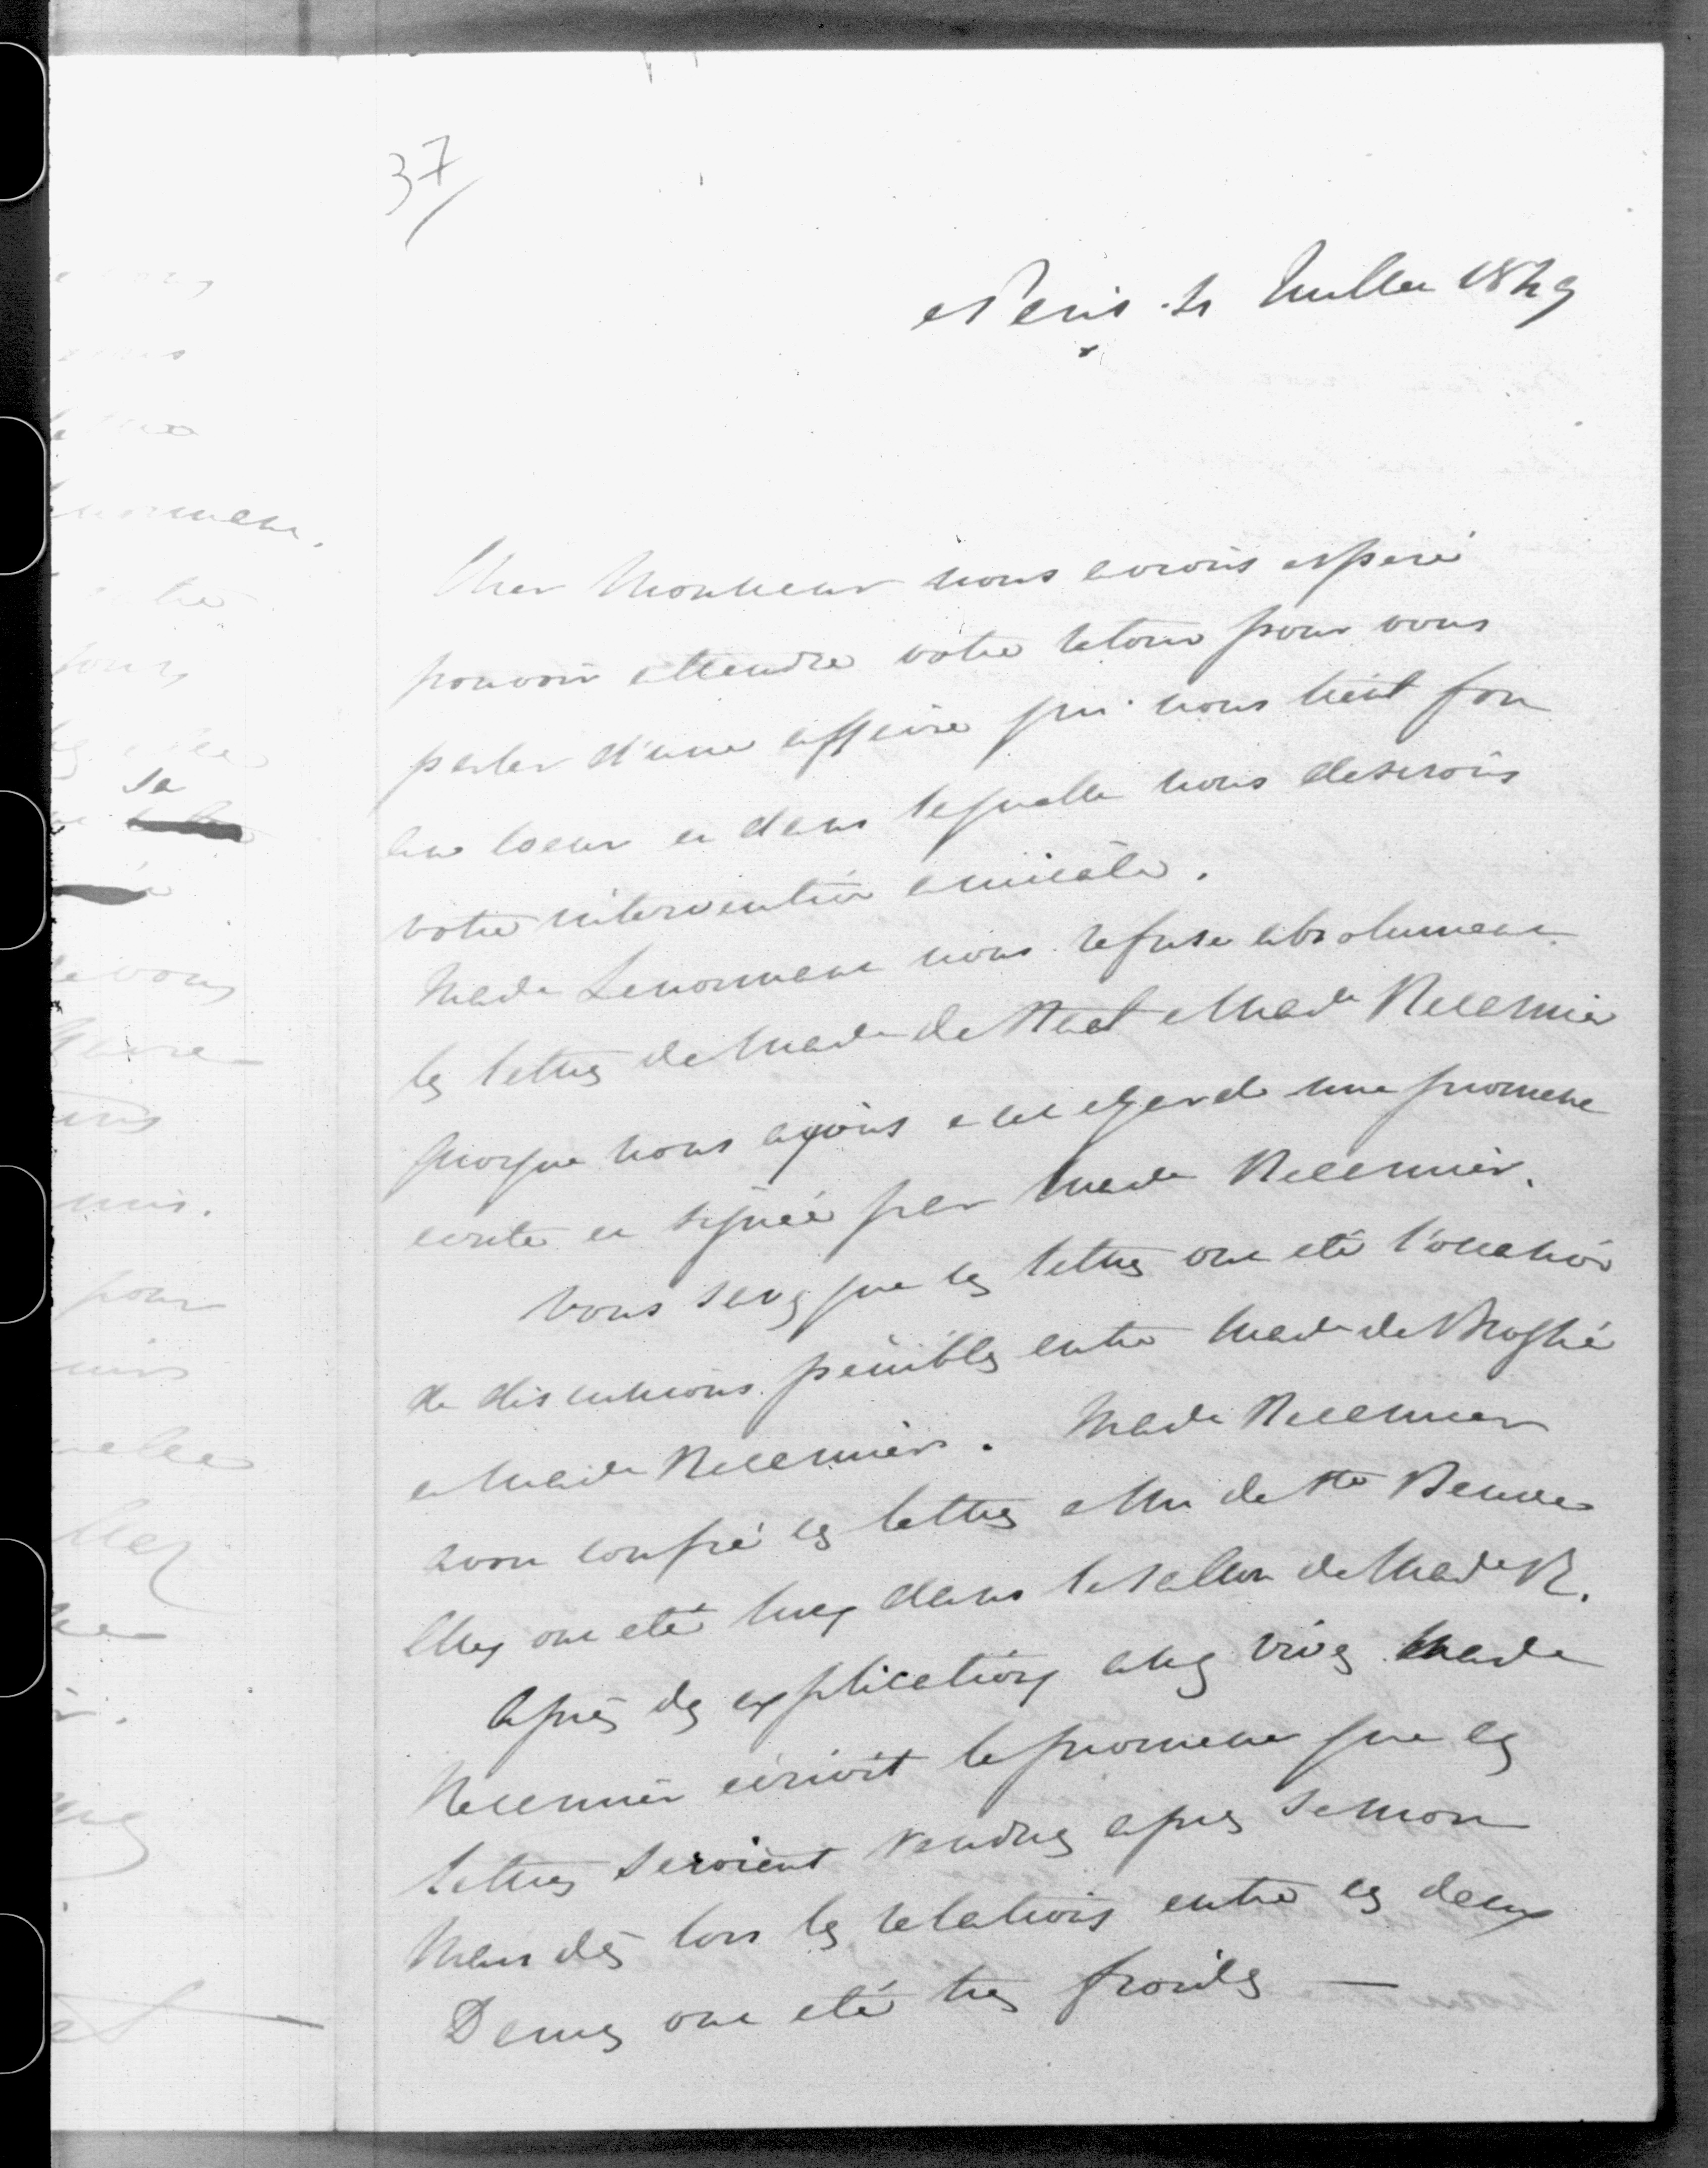 37
Paris 21 Juillet 1849
Cher Monsieur nous avions esperé
pouvoir attendre votre retour pour vous
parler d'une affaire qui nous tient fort
au coeur et dans laquelle nous desirons
votre intervention amicale.
Made Lenormant nous refuse absolument
les lettres de Made de Stael a Made Recamier
quoique nous ayons a cet egard une promesse
ecrite et signée par Made Recamier.
Vous savez que ces lettres ont eté l'occasion
de discussions penibles entre Made de Broglie
et Made Recamier. Made Recamier
avoit confié ces lettres a Mr de Ste Beuve
elles ont eté lues dans le salon de Made R.
Après des explications assez vives Made
Recamier écrivit la promesse que ces
lettres seroient rendues apres sa mort
Mais dès lors les relations entre ces deux
Dames ont eté tres froides —
sa